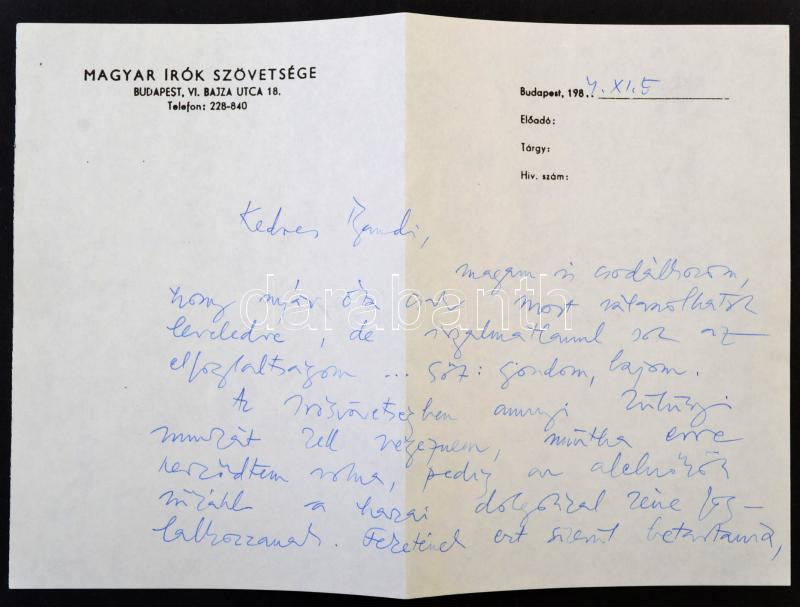 MAGYAR IRÓK SZÖVETSÉGE
BUDAPEST, VI. BAJZA UTCA 18.
Telefon: 228-840
Budapest, 198.. XI. 5
Előadó:
Tárgy:
Hiv. szám:
Kedves Bandi,
magam is csodálkozom,
hogy nyár óta csak most válaszolhatok
leveledre, de irgalmatlanul sok az
elfoglaltságom ... sőt: gondom, bajom.
Az Írószövetségben annyi külügyi
munkát kell végeznem, mintha erre
szerződtem volna, pedig az alelnökök
inkább a hazai dolgokkal kéne fog-
lalkozzanak. ezt szerint
darabanth